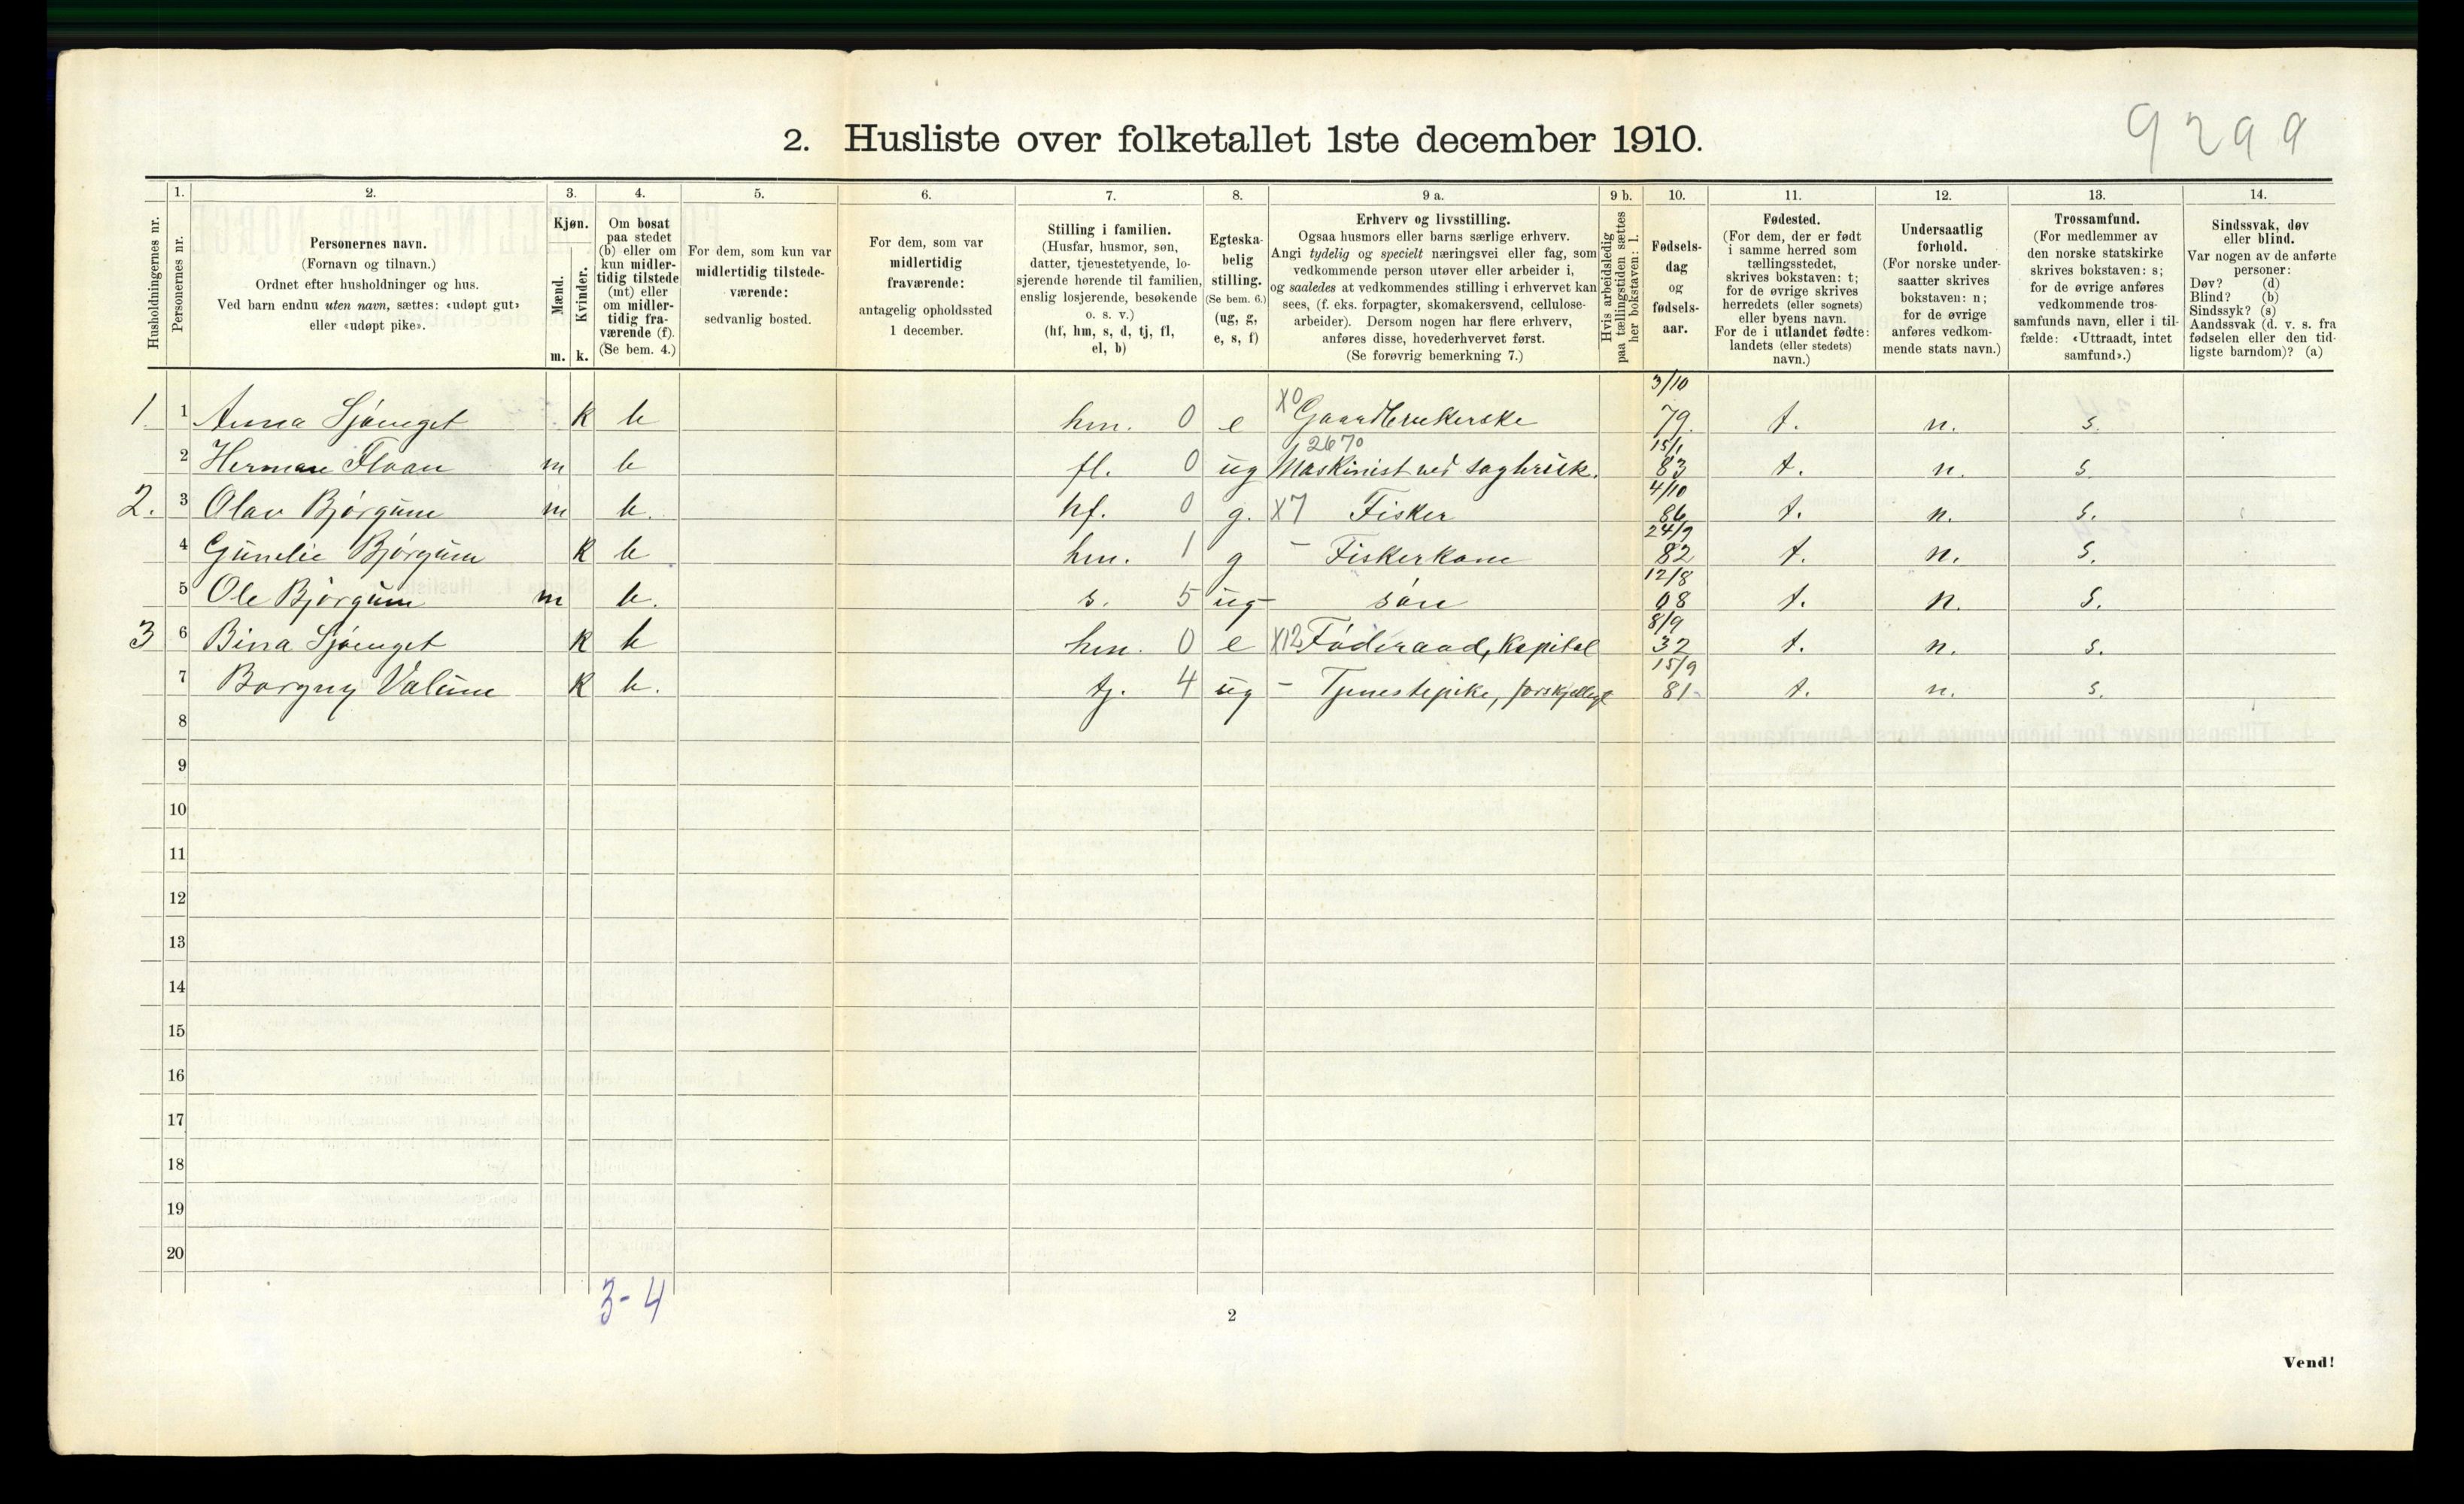 9299
2. Husliste over folketallet 1ste december 1910.
Husholdningernes nr.
1.
Personernes nr.
2.
Personernes navn.
(Fornavn og tilnavn.)
Ordnet efter husholdninger og hus.
Ved barn endnu uten navn, sættes: «udøpt gut»
eller «udøpt pike».
3.
Kjøn.
Mænd.
Kvinder.
m. k.
4.
Om bosat
paa stedet
(b) eller om
kun midler-
tidig tilstede
(mt) eller
om midler-
tidig fra-
værende (f).
(Se bem. 4.)
5.
For dem, som kun var
midlertidig tilstede-
værende:
sedvanlig bosted.
6.
For dem, som var
midlertidig
fraværende:
antagelig opholdssted
1 december.
7.
Stilling i familien.
(Husfar, husmor, søn,
datter, tjenestetyende, lo-
sjerende hørende til familien,
enslig losjerende, besøkende
o. s. v.)
(hf, hm, s, d, tj, fl,
el, b)
8.
Egteska-
belig
stilling.
(Se bem. 6.)
(ug, g,
e, s, f)
9 a.
Erhverv og livsstilling.
Ogsaa husmors eller barns særlige erhverv.
Angi tydelig og specielt næringsvei eller fag, som
vedkommende person utøver eller arbeider i,
og saaledes at vedkommendes stilling i erhvervet kan
sees, (f. eks. forpagter, skomakersvend, cellulose-
arbeider). Dersom nogen har flere erhverv,
anføres disse, hovederhvervet først.
(Se forøvrig bemerkning 7.)
9 b.
Hvis arbeidsledig
paa tællingstiden sættes
her bokstaven: l.
10.
Fødsels-
dag
og
fødsels-
aar.
11.
Fødested.
(For dem, der er født
i samme herred som
tællingsstedet,
skrives bokstaven: t;
for de øvrige skrives
herredets (eller sognets)
eller byens navn.
For de i utlandet fødte:
landets (eller stedets)
navn.)
12.
Undersaatlig
forhold.
(For norske under-
saatter skrives
bokstaven: n;
for de øvrige
anføres vedkom-
mende stats navn.)
13.
Trossamfund.
(For medlemmer av
den norske statskirke
skrives bokstaven: s;
for de øvrige anføres
vedkommende tros-
samfunds navn, eller i til-
fælde: «Uttraadt, intet
samfund».)
14.
Sindssvak, døv
eller blind.
Var nogen av de anførte
personer:
Døv? (d)
Blind? (b)
Sindssyk? (s)
Aandssvak (d. v. s. fra
fødselen eller den tid-
ligste barndom)? (a)
1. 1 Anna Sjøenget k b hm. 0 e X0 Gaardbrukerske 3/10 79. t. n. s.
2 Herman Floan m b fl. 0 ug 2670 Maskinist ved sagbruk. 15/1 83 t. n. s
2. 3 Olav Bjørgum m b. hf. 0 g. X7 Fisker 4/10 86 t. n. s.
4 Gunelie Bjørgum k b hm. 1 g – Fiskerkone 24/9 82 t. n. s.
5 Ole Bjørgum m b. s. 5 ug søn 12/8 08 t. n. s.
3 6 Bina Sjøenget k b hm. 0 e X12 Føderaad, kapital 8/9 32 t. n. s.
7 Borgny Valume k b. tj. 4 ug – Tjenestepike, forskjelligt 15/9 81 t. n. s.
8
9
10
11
12
13
14
15
16
17
18
19
20
3-4
2
Vend!